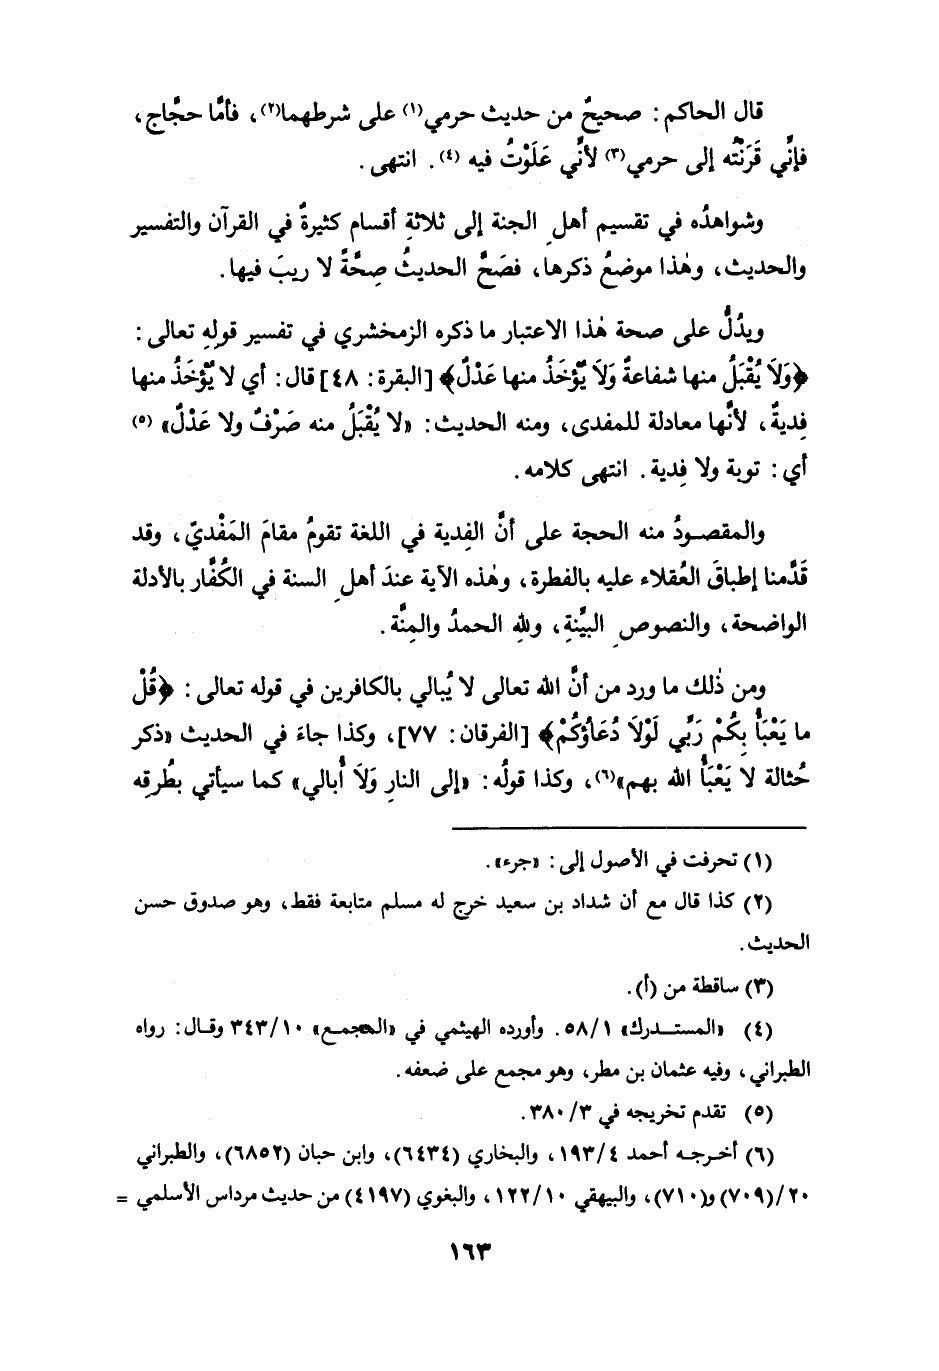 قال الحاكم: صحيحٌ من حديث حرمي(١) على شرطهما(٢)، فأمَّا حجَّاج،
فإنِّي قَرَنْتُه إلى حرمي(٣) لأنِّي عَلَوْتُ فيه (٤). انتهى.
وشواهدُه في تقسيم أهلِ الجنة إلى ثلاثةِ أقسام كثيرةٌ في القرآن والتفسير
والحديث، وهٰذا موضعُ ذكرها، فصَحَّ الحديثُ صِحَّةً لا ريبَ فيها.
ويدُلُّ على صحة هٰذا الاعتبار ما ذكره الزمخشري في تفسير قولِه تعالى:
﴿وَلَا يُقْبَلُ منها شفاعةٌ وَلَا يُؤخَذُ منها عَدْلٌ﴾ [البقرة: ٤٨] قال: أي لا يُؤخَذُ منها
فِديةٌ، لأنَّها معادلة للمفدى، ومنه الحديث: «لا يُقْبَلُ منه صَرْفٌ ولا عَدْلٌ» (٥)
أي: توبة ولا فِدية. انتهى كلامه.
والمقصـودُ منه الحجة على أنَّ الفِدية في اللغة تقومُ مقامَ المَفْديّ، وقد
قَدَّمنا إطباقَ العُقلاء عليه بالفطرة، وهٰذه الآية عندَ أهلِ السنة في الكُفَّار بالأدلة
الواضحة، والنصوصِ البيِّنةِ، ولله الحمدُ والمِنَّة.
ومن ذٰلك ما ورد من أنَّ الله تعالى لا يُبالي بالكافرين في قوله تعالى: ﴿قُلْ
ما يَعْبَأُ بِكُمْ رَبِّي لَوْلَا دُعَاؤكُمْ﴾ [الفرقان: ٧٧]، وكذا جاءَ في الحديث «ذكر
حُثالة لا يَعْبَأُ الله بهم»(٦)، وكذا قولُه: «إلى النارِ وَلَا أُبالي» كما سيأتي بطُرقِه
(١) تحرفت في الأصول إلى: «جزء».
(٢) كذا قال مع أن شداد بن سعيد خرج له مسلم متابعة فقط، وهو صدوق حسن
الحديث.
(٣) ساقطة من (أ).
(٤) «المستـدرك» ٥٨/١. وأورده الهيثمي في «المجمـع» ٣٤٣/١٠ وقـال: رواه
الطبراني، وفيه عثمان بن مطر، وهو مجمع على ضعفه.
(٥) تقدم تخريجه في ٣٨٠/٣.
(٦) أخـرجـه أحمد ١٩٣/٤، والبخاري (٦٤٣٤)، وابن حبان (٦٨٥٢)، والطبراني
٢٠/(٧٠٩) و(٧١٠)، والبيهقي ١٢٢/١٠، والبغوي (٤١٩٧) من حديث مرداس الأسلمي =
١٦٣